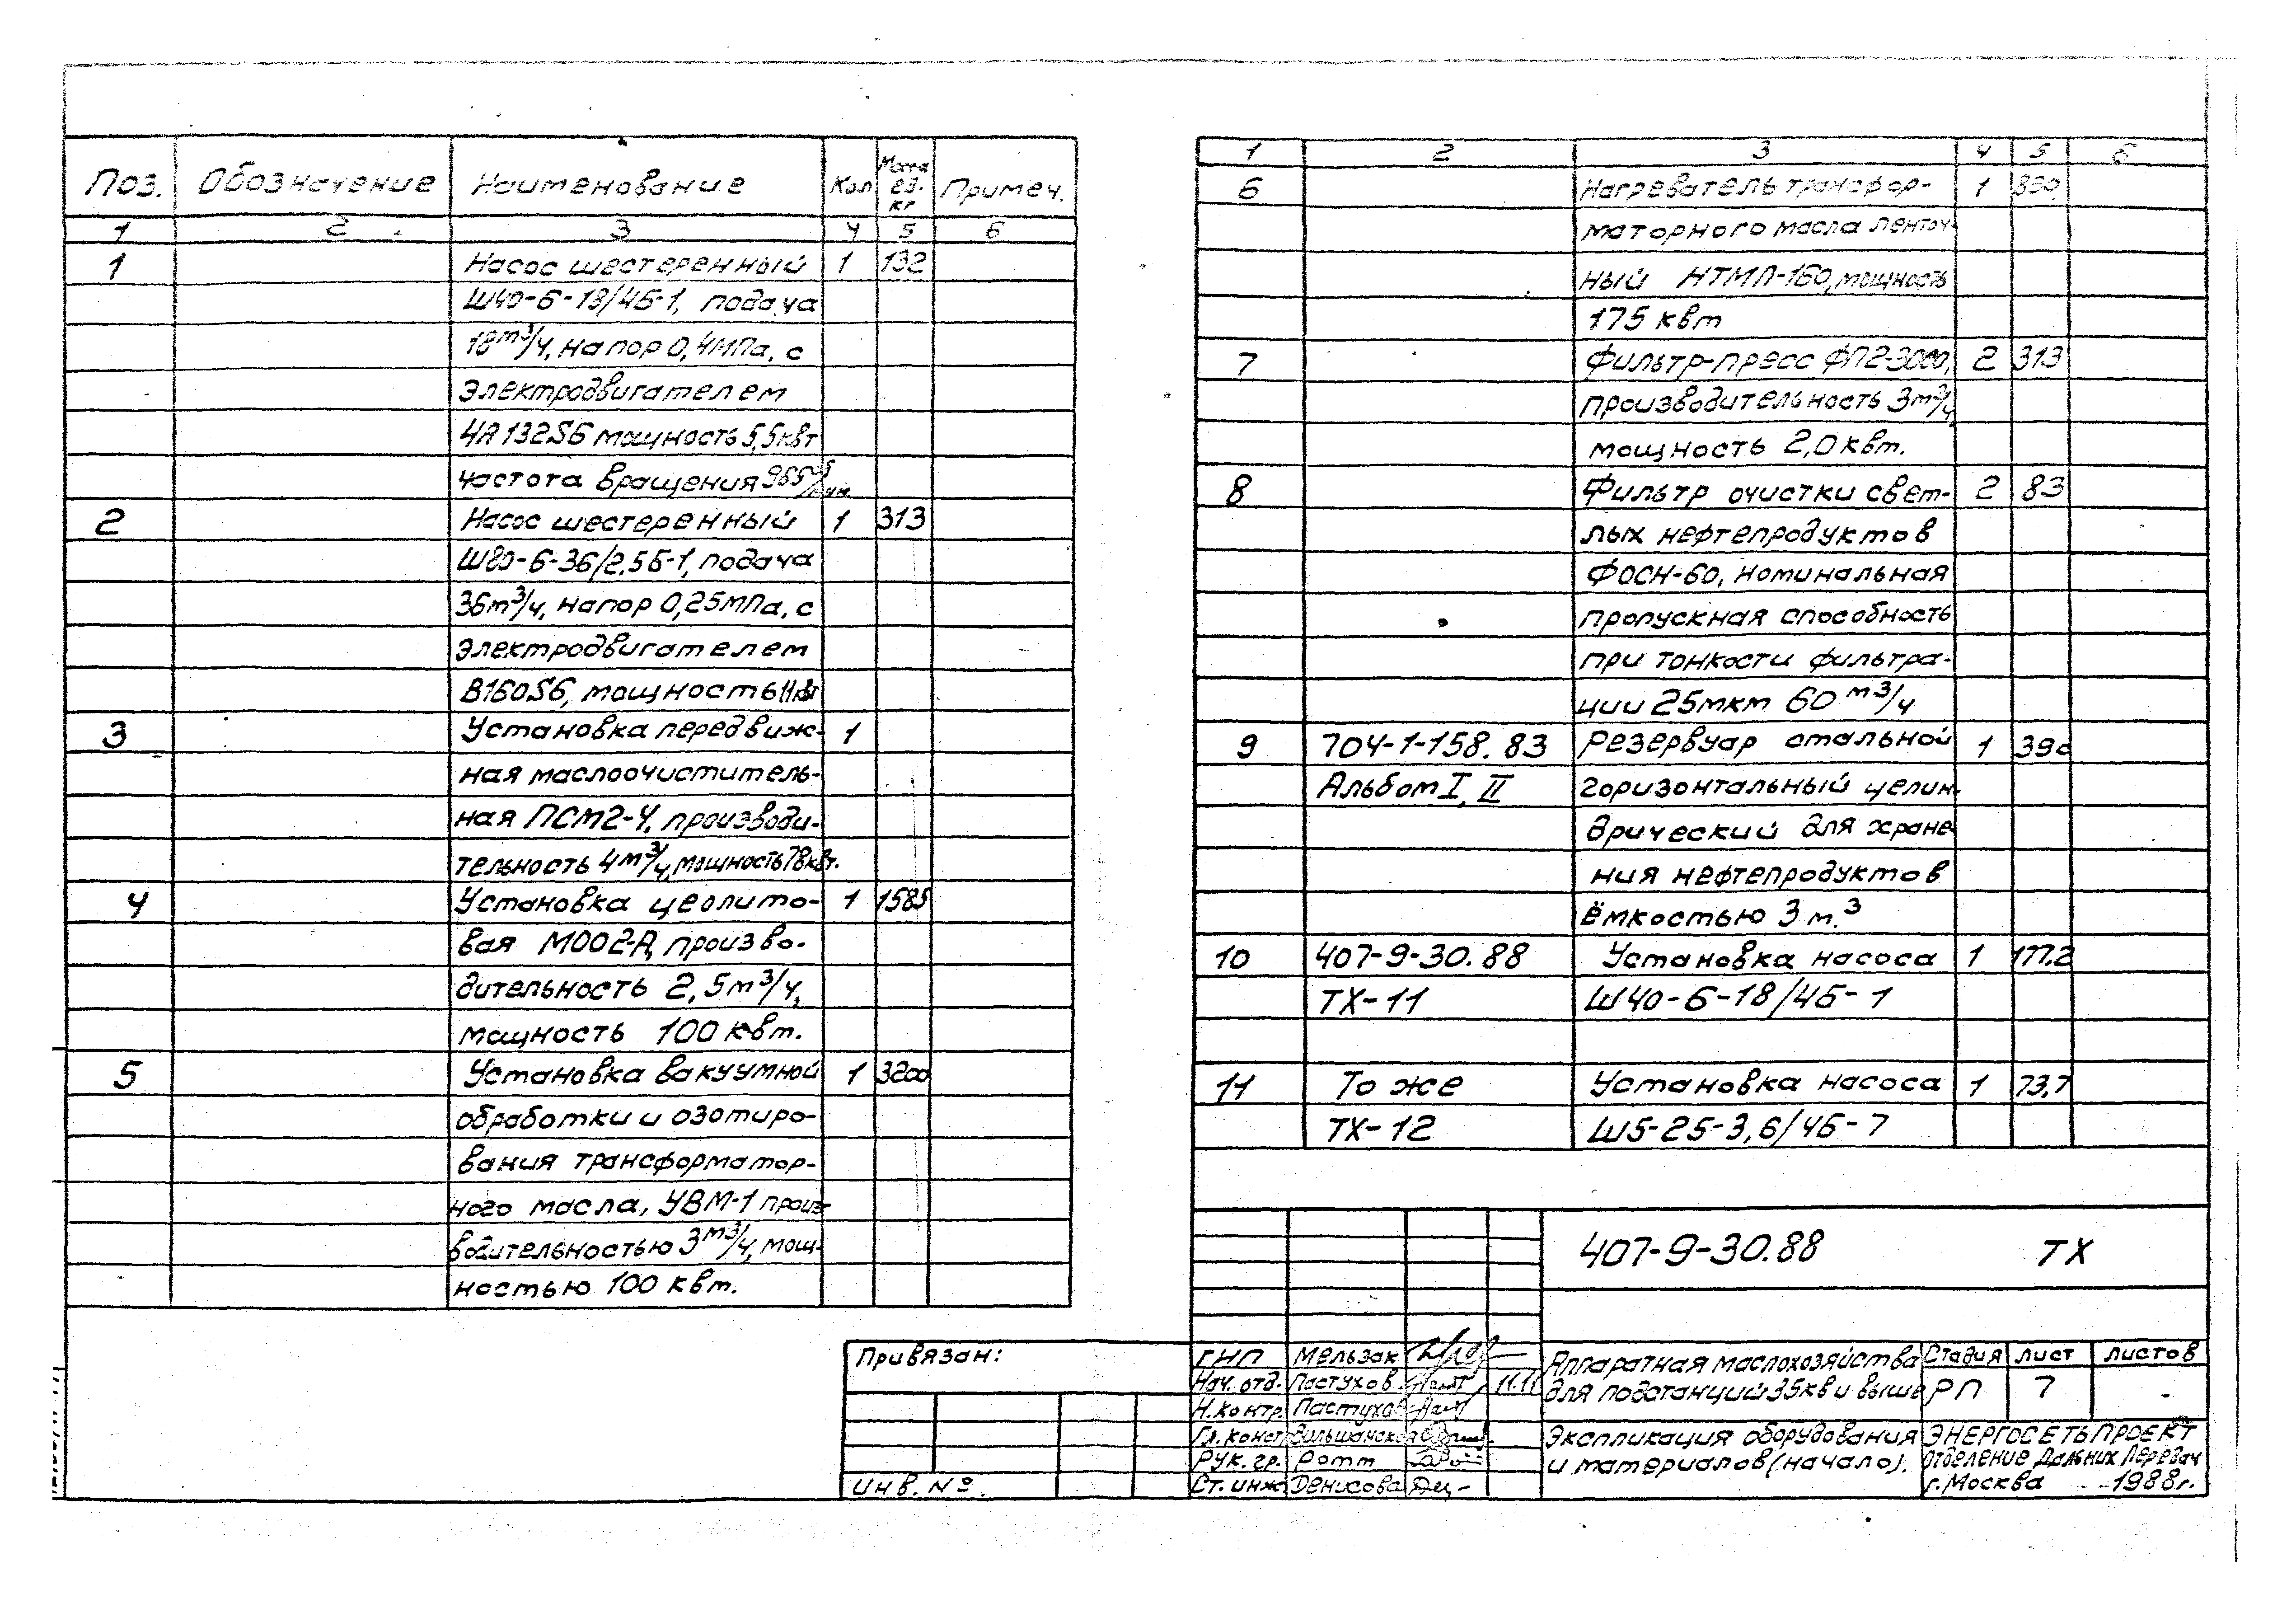 Поз. Обозначение Наименование Кол. Масса ед. кг Примеч.
1 2 3 4 5 6
1 Насос шестеренный 1 132
Ш40-6-18/4Б-1, подача
18 м³/ч, напор 0,4МПа, с
электродвигателем
4А132S6 мощность 5,5квт
частота вращения 965 об/мин.
2 Насос шестеренный 1 313
Ш80-6-36/2,5Б-1, подача
36м³/ч, напор 0,25МПа, с
электродвигателем
В160S6, мощность 11квт
3 Установка передвиж- 1
ная маслоочиститель-
ная ПСМ2-4, производи-
тельность 4м³/ч, мощность 78квт.
4 Установка цеолито- 1 1585
вая М002-А, произво-
дительность 2,5м³/ч,
мощность 100 квт.
5 Установка вакуумной 1 3200
обработки и озотиро-
вания трансформатор-
ного масла, УВМ-1 произ-
водительностью 3 м³/ч, мощ-
ностью 100 квт.
1 2 3 4 5 6
6 Нагреватель трансфор- 1
маторного масла ленточ-
ный НТМЛ-160, мощность
175 квт
7 Фильтр-пресс ФП2-3000, 2 313
производительность 3м³/ч,
мощность 2,0 квт.
8 Фильтр очистки свет- 2 83
лых нефтепродуктов
ФОСН-60, номинальная
пропускная способность
при тонкости фильтра-
ции 25мкм 60 м³/ч
9 704-1-158.83 Резервуар стальной 1 390
Альбом I, II горизонтальный целин-
дрический для хране-
ния нефтепродуктов
ёмкостью 3 м.³
10 407-9-30.88 Установка насоса 1 177.2
ТХ-11 Ш40-6-18/4Б-1
11 То же Установка насоса 1 73,7
ТХ-12 Ш5-25-3,6/4Б-7
407-9-30.88 ТХ
Привязан:
Инв. №.
ГИП Мельзак
Нач. отд. Пастухов 11.11
Н.контр. Пастухов
Гл. констр.
Рук. гр. Ротт
Ст. инж. Денисова
Аппаратная маслохозяйства
для подстанций 35кв и выше
Стадия Лист Листов
РП 7 -
Экспликация оборудования
и материалов (начало).
ЭНЕРГОСЕТЬПРОЕКТ
Отделение Дальних Передач
г. Москва 1988г.